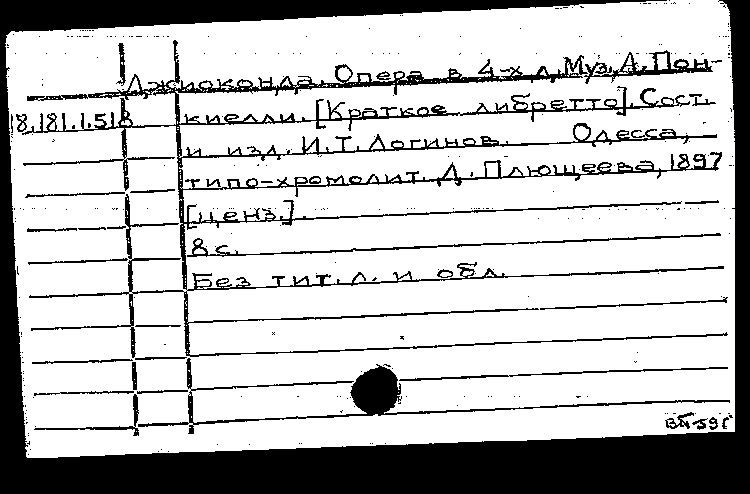 Джиоконда. Опера в 4-х д. Муз. А. Пон-
18.181.1.518 киелли. [Краткое либретто]. Сост.
и изд. И.Т. Логинов. Одесса,
типо-хромолит. Д. Плющеева, 1897
[ценз.].
8 с.
Без тит. л. и обл.